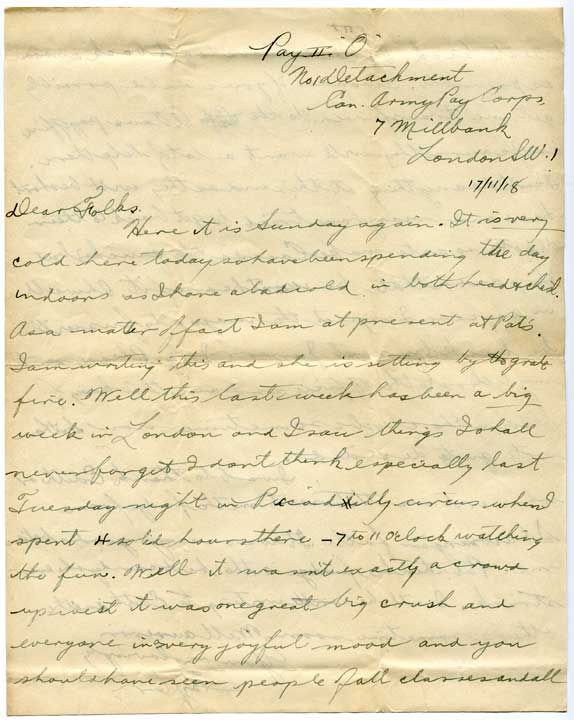 Pay II "O"
No 1 Detachment
Can. Army Pay Corps.
7 Millbank
London S.W. 1
17/11/18
Dear Folks.
Here it is Sunday again. It is very
cold here today so have been spending the day
indoors as I have a bad cold in both head & chest.
As a matter of fact I am at present at Pats.
I am writing this and she is sitting by the grate
fire. Well this last week has been a big
week in London and I saw things I shall
never forget I dont think especially last
Tuesday night in Piccadilly circus when I
spent 4 solid hours there – 7 to 11 Oclock watching
the fun. Well it wasn't exactly a crowd
it was one great big crush and
everyone in very joyful mood and you
should have seen people of all classes and all